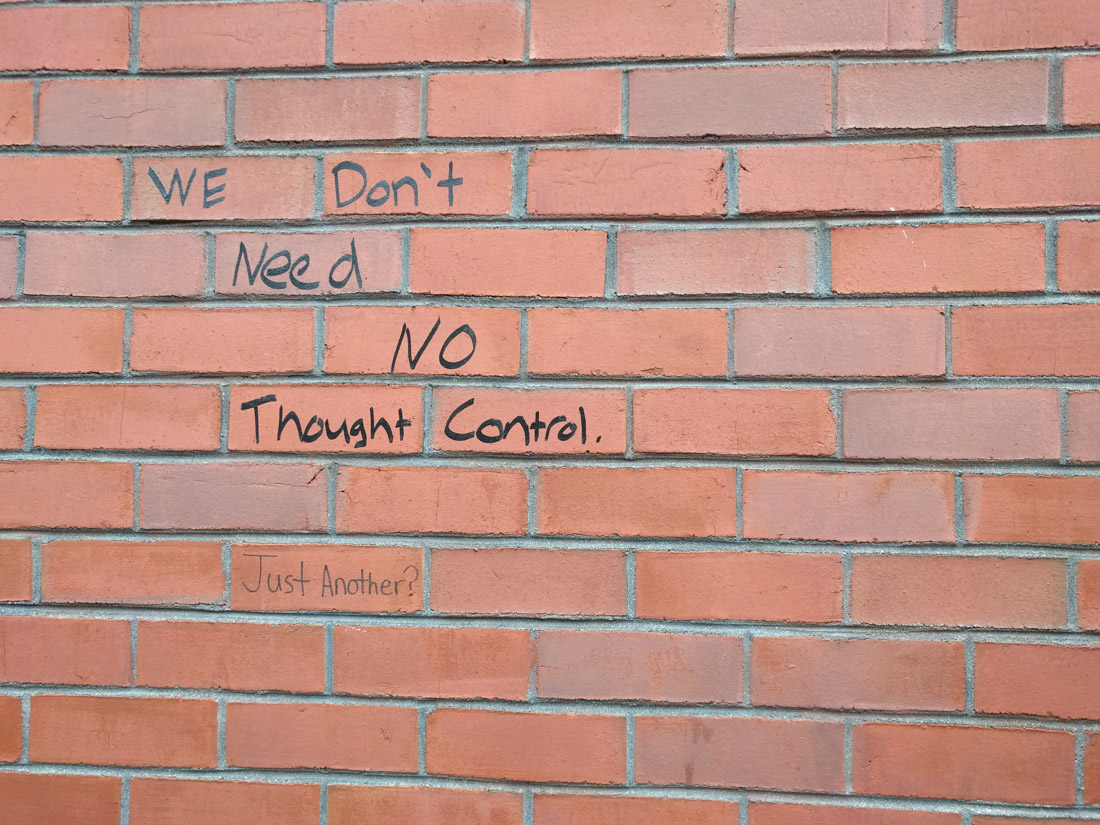 WE Don't
Need
NO
Thought Control.
Just Another?